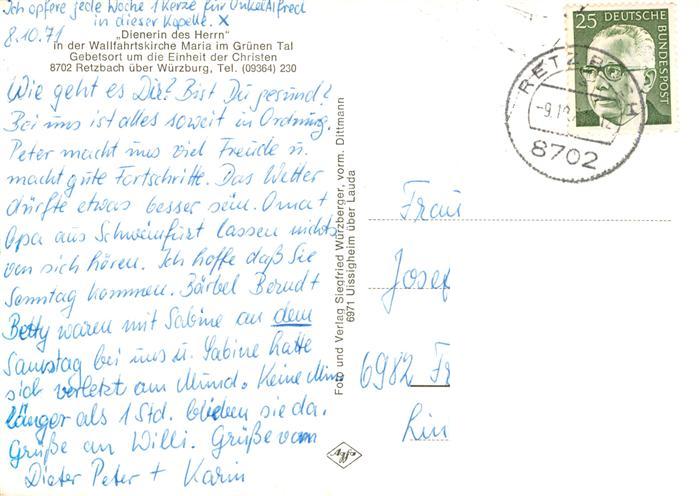 Ich opfere jede Woche 1 Kerze für Onkel Alfred
in dieser Kapelle. X
8.10.71
„Dienerin des Herrn“
in der Wallfahrtskirche Maria im Grünen Tal
Gebetsort um die Einheit der Christen
8702 Retzbach über Würzburg, Tel. (09364) 230
Wie geht es Dir? Bist Du gesund?
Bei uns ist alles soweit in Ordnung.
Peter macht uns viel Freude u.
macht gute Fortschritte. Das Wetter
dürfte etwas besser sein. Oma +
Opa aus Schweinfurt lassen nichts
von sich hören. Ich hoffe daß Sie
Sonntag kommen. Bärbel Berndt +
Betty waren mit Sabine an dem
Samstag bei uns u. Sabine hatte
sich verletzt am Mund. Keine Min
länger als 1 Std. blieben sie da.
Grüße an Willi. Grüße von
Dieter Peter + Karin
Foto und Verlag Siegfried Würzberger, vorm. Dittmann
6971 Uissigheim über Lauda
25 DEUTSCHE
BUNDESPOST
RETZBACH
-9.10.
8702
Frau
Josef
6982 Fr
Lin